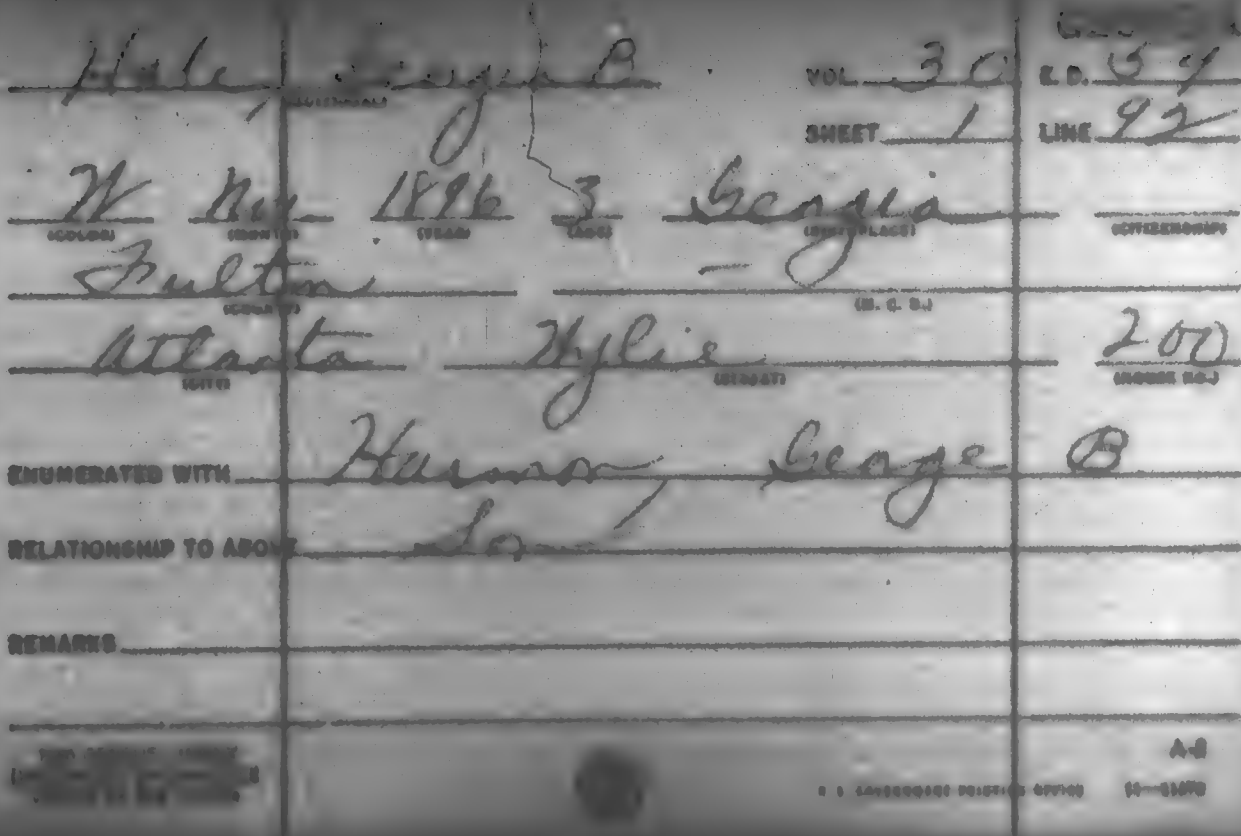 Hale, George B VOL. 30 E.D. 54
SHEET 1 LINE 92
W Nov 1896 3 Georgia
(COLOR) (MONTH) (YEAR) (AGE) (BIRTHPLACE) (CITIZENSHIP)
Fulton —
(COUNTY) (M. C. D.)
Atlanta Wylie 200
(CITY) (STREET) (HOUSE NO.)
ENUMERATED WITH Harmon, George B
RELATIONSHIP TO ABOVE So
REMARKS
A-2
U S GOVERNMENT PRINTING OFFICE